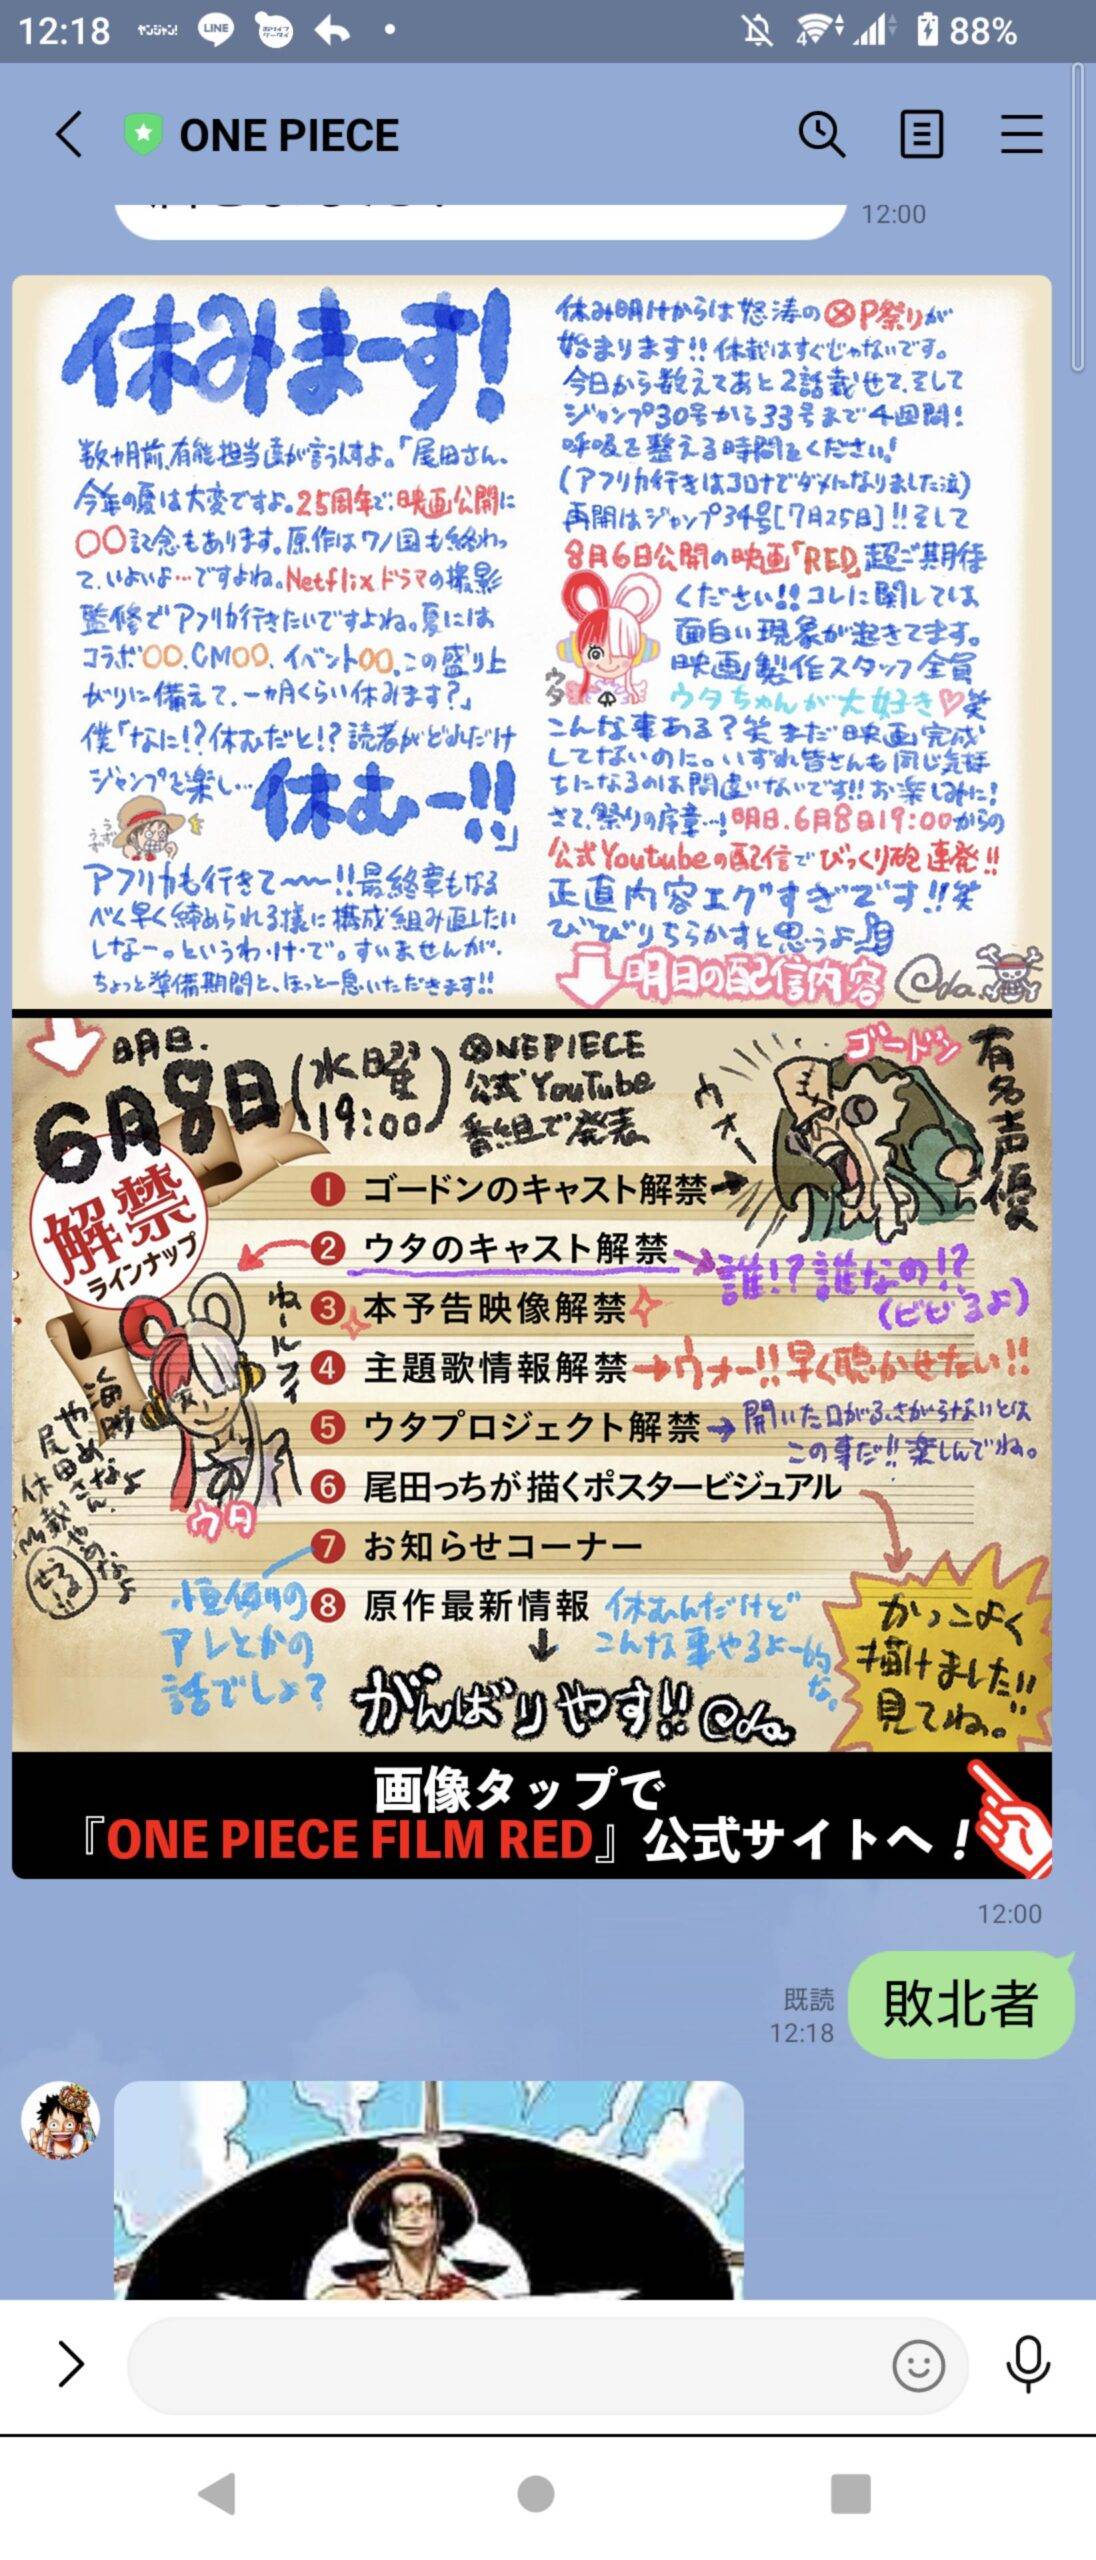 12:18
ヤンジャン!
LINE
88%
ONE PIECE
12:00
休みまーす!
数ヶ月前、有能担当達が言うんすよ。「尾田さん、
今年の夏は大変ですよ。25周年で、映画公開に
〇〇記念もあります。原作はワノ国も終わっ
て、いよいよ…ですよね。Netflixドラマの撮影
監修でアフリカ行きたいですよね。夏には
コラボ〇〇、CM〇〇、イベント〇〇、この盛り上
がりに備えて、一ヵ月くらい休みます?」
僕「なに!?休むだと!?読者がどれだけ
ジャンプを楽し…休むー!!」
うず
うず
アフリカも行きて〜〜!!最終章もなる
べく早く締められる様に構成組み直したい
しなー。というわ・け・で。すいませんが、
ちょっと準備期間と、ほっと一息いただきます!!
休み明けからは怒涛のⓍP祭りが
始まります!!休載はすぐじゃないです。
今日から数えてあと2話載せて、そして
ジャンプ30号から33号まで4週間!
呼吸を整える時間をください!
(アフリカ行きはコロナでダメになりました泣)
再開はジャンプ34号[7月25日]!!そして
8月6日公開の映画「RED」超ご期待
ください!!コレに関しては
面白い現象が起きてます。
映画製作スタッフ全員
ウタ
ウタちゃんが大好き♡笑
こんな事ある?笑 まだ映画完成
してないのに。いずれ皆さんも同じ気持
ちになるのは間違いないです!!お楽しみに!
さて、祭りの序章…!明日、6月8日19:00からの
公式Youtubeの配信でびっくり砲連発!!
正直内容エグすぎです!!笑
びびりちらかすと思うよ
明日の配信内容
Oda.
明日.
6月8日(水曜 19:00)
ⓍNEPIECE
公式YouTube
番組で発表
ゴードン
有名声優
ウォー
解禁
ラインナップ
❶ ゴードンのキャスト解禁
❷ ウタのキャスト解禁
誰!?誰なの!?
(ビビるよ)
❸ 本予告映像解禁
❹ 主題歌情報解禁→ウォー!!早く聴かせたい!!
❺ ウタプロジェクト解禁→開いた口がふさがらないとは
この事だ!!楽しんでね。
❻ 尾田っちが描くポスタービジュアル
❼ お知らせコーナー
❽ 原作最新情報
ねールフィ
ウタ
恒例の
アレとかの
話でしょ?
休むんだけど
こんな事やるよー的
な。
かっこよく
描けました!!
見てね。
がんばりやす!!Oda
画像タップで
『ONE PIECE FILM RED』公式サイトへ!
12:00
敗北者
既読
12:18